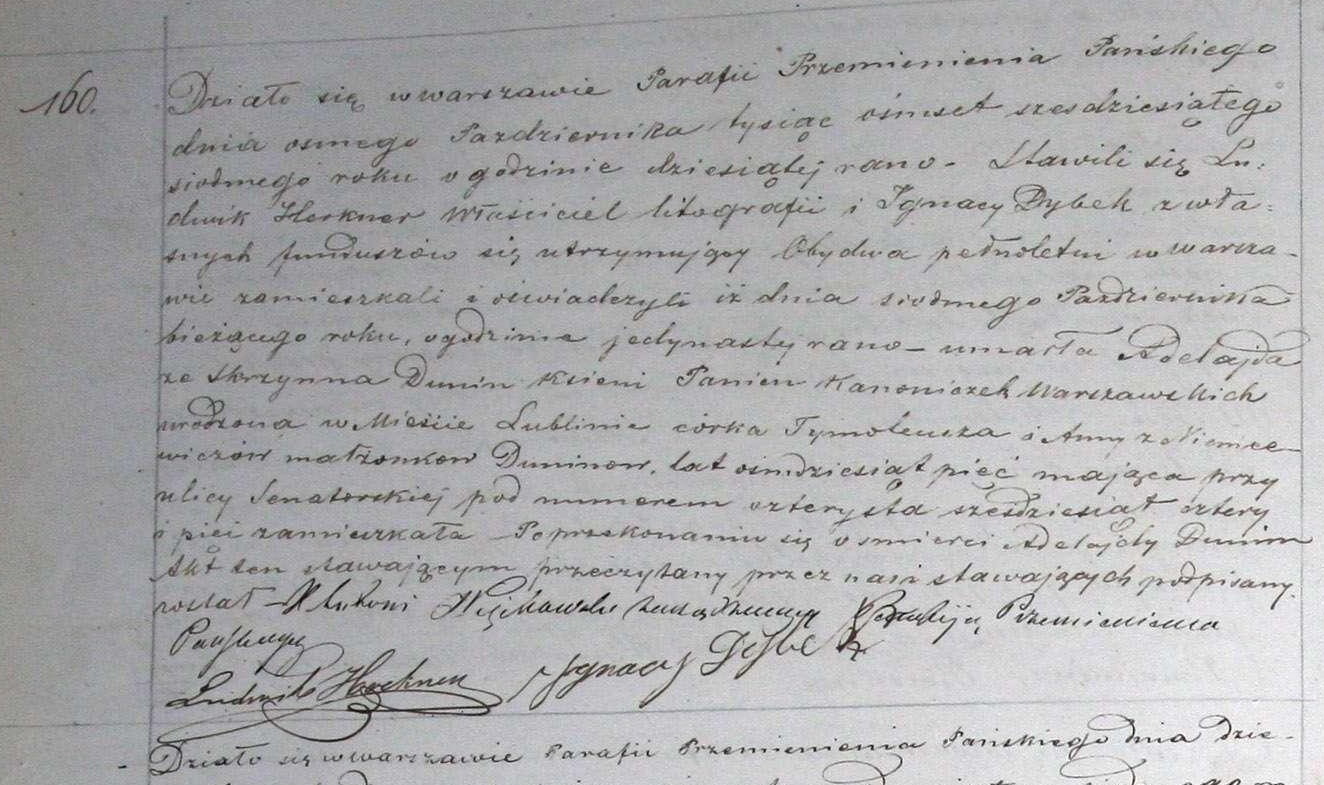 160.
Działo się w warszawie Parafii Przemienienia Pańskiego
dnia osmego Pazdziernika tysiąc ośmset szesdziesiątego
siodmego roku o godzinie dziesiątej rano - Stawili się Lu:
dwik Herkner Właściciel litografii i Ignacy Dybek z wła:
snych funduszów się utrzymujący Obydwa pełnoletni w warsza-
wie zamieszkali i oświadczyli iż dnia siodmego Pazdziernika
bieżącego roku, o godzinie jedynastej rano - umarła Adelajda
ze Skrzynna Dunin Ksieni Panien Kanoniczek Warszawskich
urodzona w Mieście Lublinie córka Tymoteusza i Anny z Niemce-
wiczów małżonkow Duninow, lat ośmdziesiąt pięć mająca przy
ulicy Senatorskiej pod numerem czterysta szesdziesiat cztery
i pieć zamieszkała - Po przekonaniu się o smierci Adelajdy Dunin
Akt ten stawającym przeczytany przez nas i stawających podpisany
został - X Antoni Parafiją Przemienienia
Pańskiego
Ludwik Herkner Ignacy Dybek
Działo się w warszawie Parafii Przemienienia Pańskiego dnia dzie-